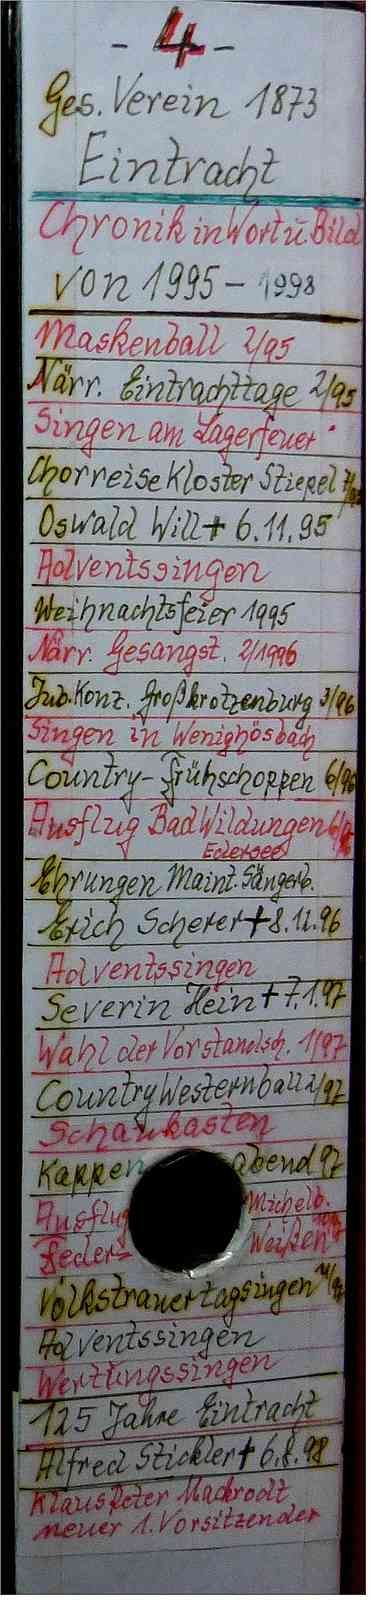 - 4 -
Ges. Verein 1873
Eintracht
Chronik in Wort u. Bild
von 1995 - 1998
Maskenball 2/95
Närr. Eintrachttage 2/95
Singen am Lagerfeuer
Chorreise Kloster Stiepel
Oswald Will + 6.11.95
Adventssingen
Weihnachtsfeier 1995
Närr. Gesangst. 2/1996
Jub. Konz. Großkrotzenburg 3/96
Singen in Wenighösbach
Country-Frühschoppen 6/96
Ausflug Bad Wildungen
Edersee
Ehrungen Maint. Sängerb.
Erich Scherer + 8.12.96
Adventssingen
Severin Hein + 7.1.97
Wahl der Vorstandsch. 1/97
Country Westernball 2/97
Schaukasten
Kappen abend 97
Ausflug Michelb.
Feder- Weißen
Volkstrauertagsingen
Adventssingen
Wertungssingen
125 Jahre Eintracht
Alfred Stickler + 6.8.98
Klaus Peter Mackrodt
neuer 1. Vorsitzender